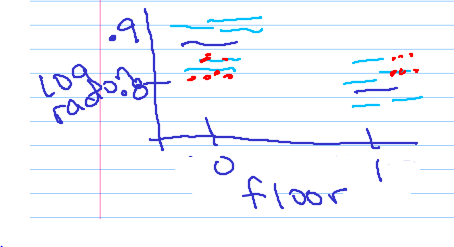 .9
Log
radon .8
0 1
floor